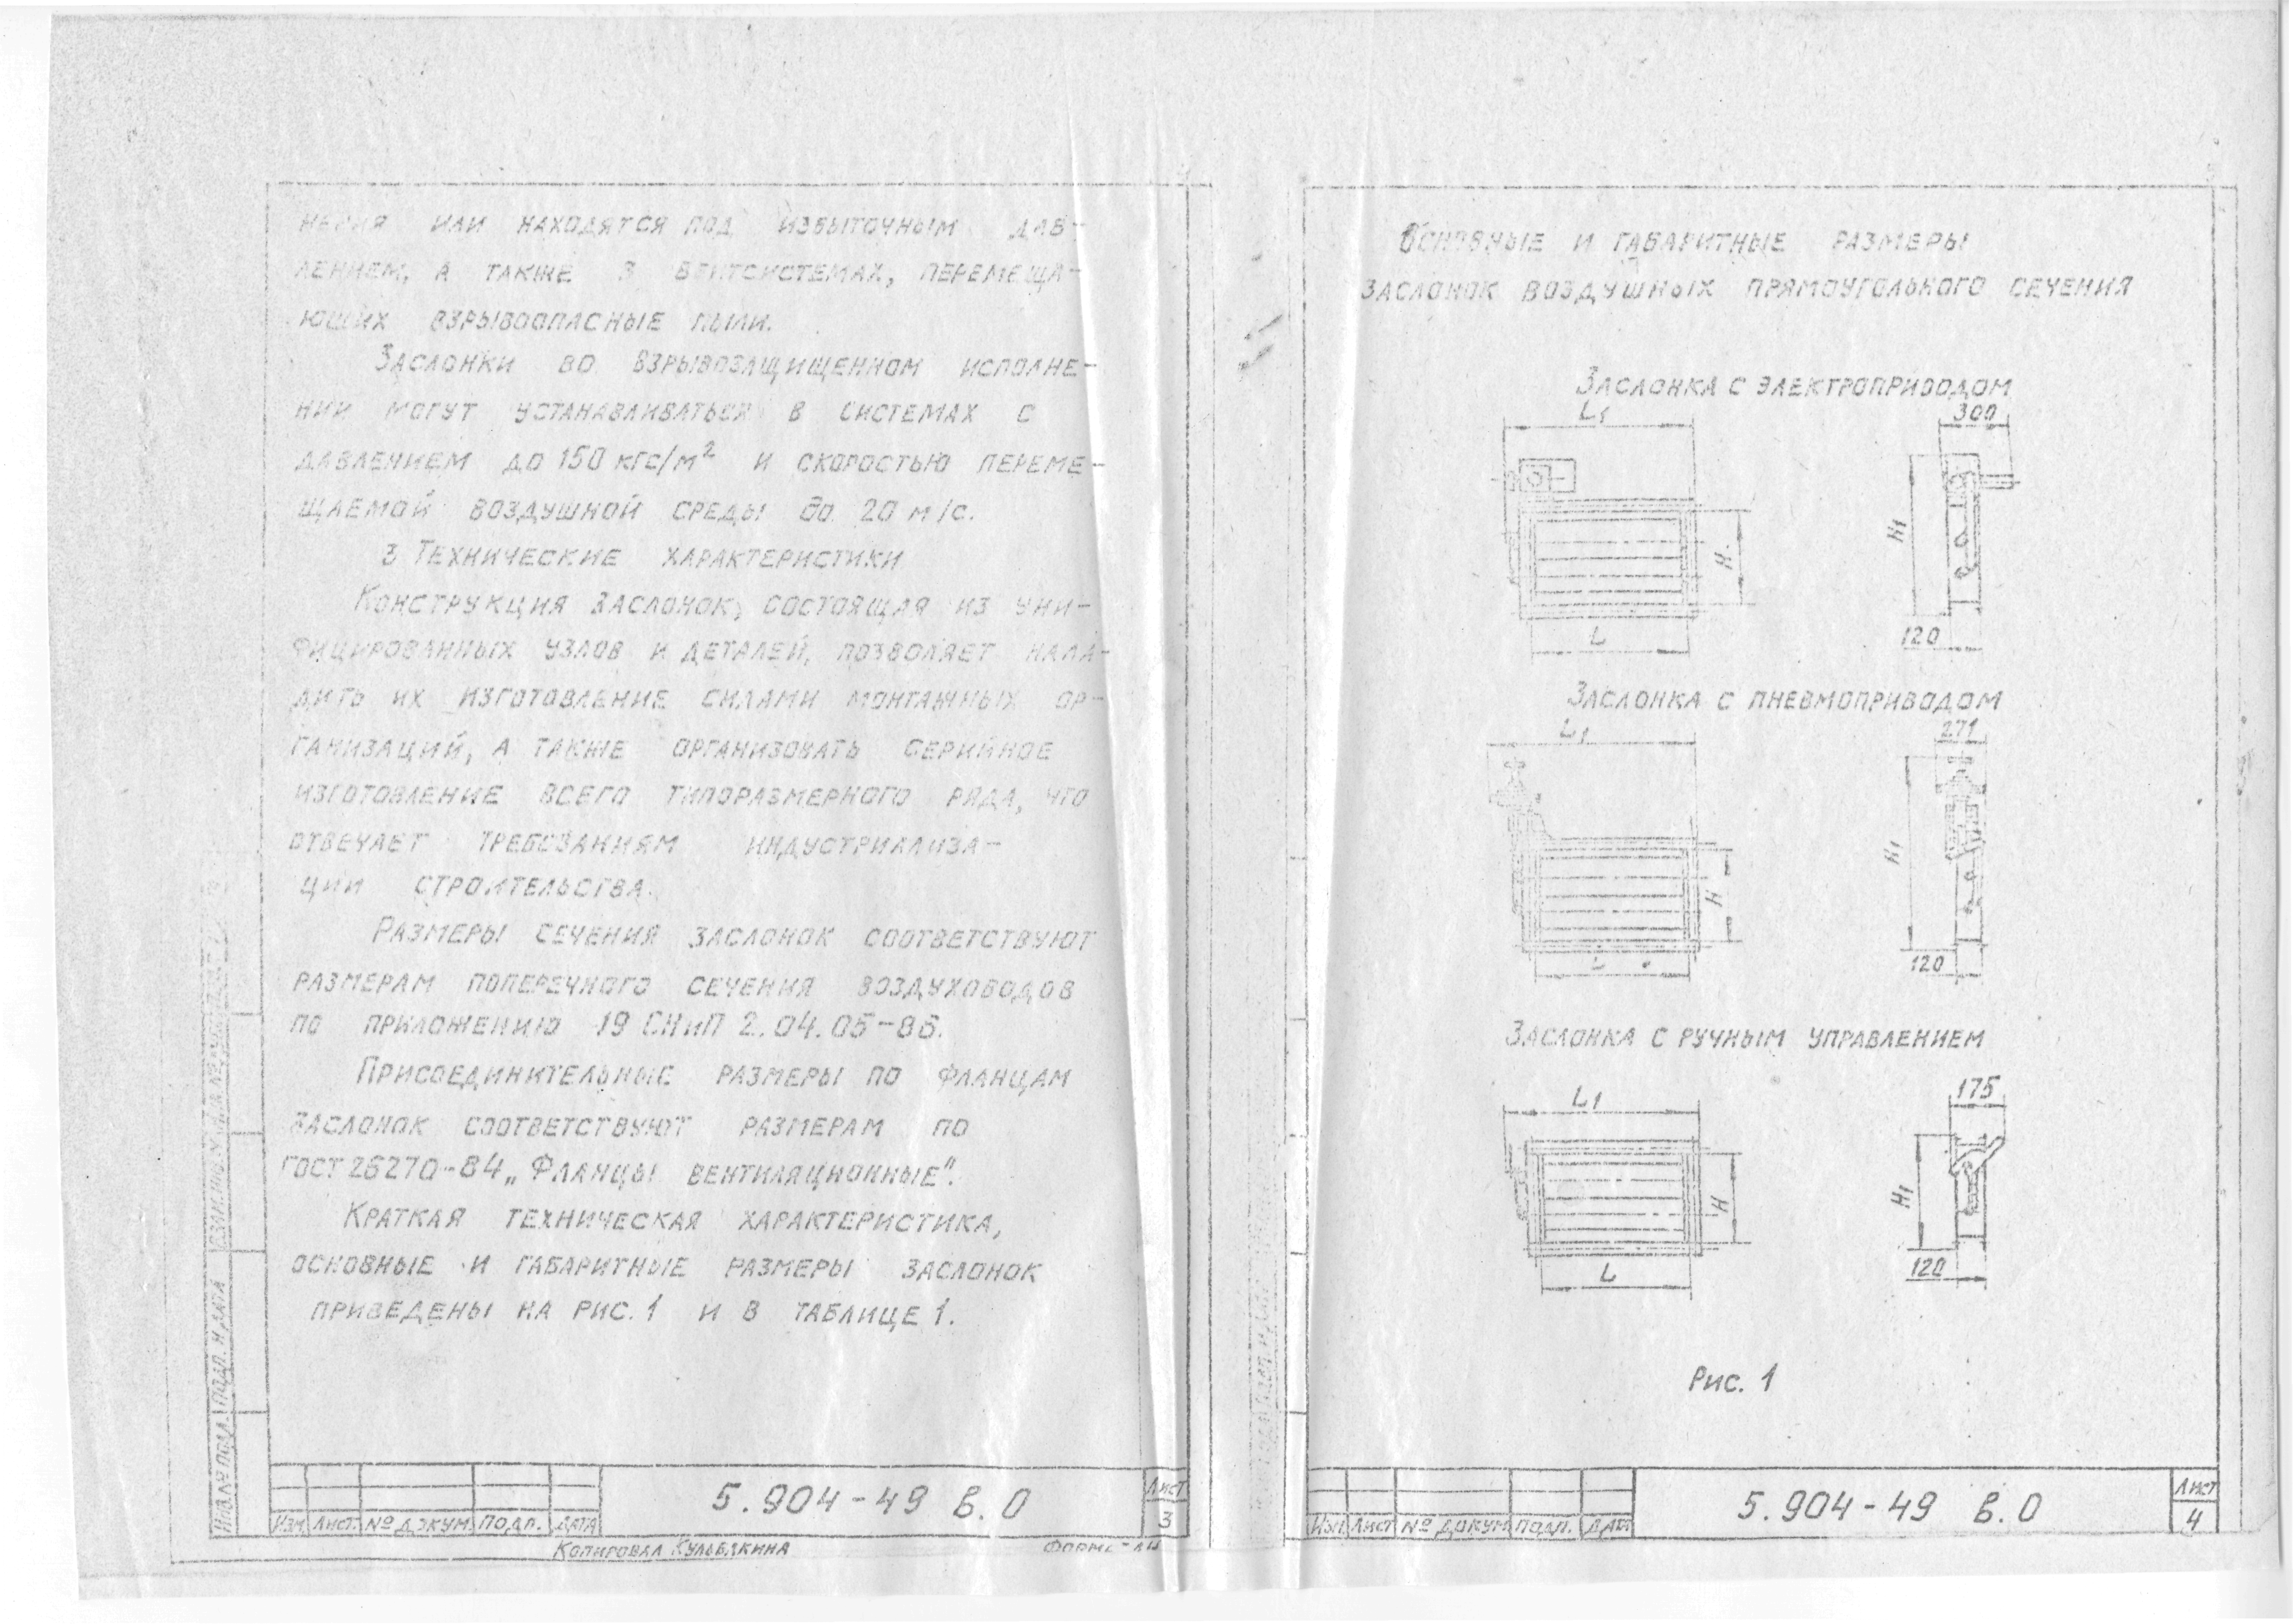 нения или находятся под избыточным дав-
лением, а также в вентсистемах, перемеща-
ющих взрывоопасные пыли.
Заслонки во взрывозащищенном исполне-
нии могут устанавливаться в системах с
давлением до 150 кгс/м² и скоростью переме-
щаемой воздушной среды до 20 м/с.
3 Технические характеристики
Конструкция заслонок, состоящая из уни-
фицированных узлов и деталей, позволяет нала-
дить их изготовление силами монтажных ор-
ганизаций, а также организовать серийное
изготовление всего типоразмерного ряда, что
отвечает требованиям индустриализа-
ции строительства.
Размеры сечения заслонок соответствуют
размерам поперечного сечения воздуховодов
по приложению 19 СНиП 2.04.05-86.
Присоединительные размеры по фланцам
заслонок соответствуют размерам по
ГОСТ 26270-84 „Фланцы вентиляционные".
Краткая техническая характеристика,
основные и габаритные размеры заслонок
приведены на рис. 1 и в таблице 1.
Инв.№ подл. Подп. и дата
Изм Лист № докум Подп. Дата
5.904-49 в.0
Лист
3
Копировал Кульбякина
Основные и габаритные размеры
заслонок воздушных прямоугольного сечения
Заслонка с электроприводом
L1 300
H H1
L 120
Заслонка с пневмоприводом
L1 271
H H1
L 120
Заслонка с ручным управлением
L1 175
H H1
L 120
Рис. 1
Изм Лист № докум Подп. Дата
5.904-49 в.0
Лист
4